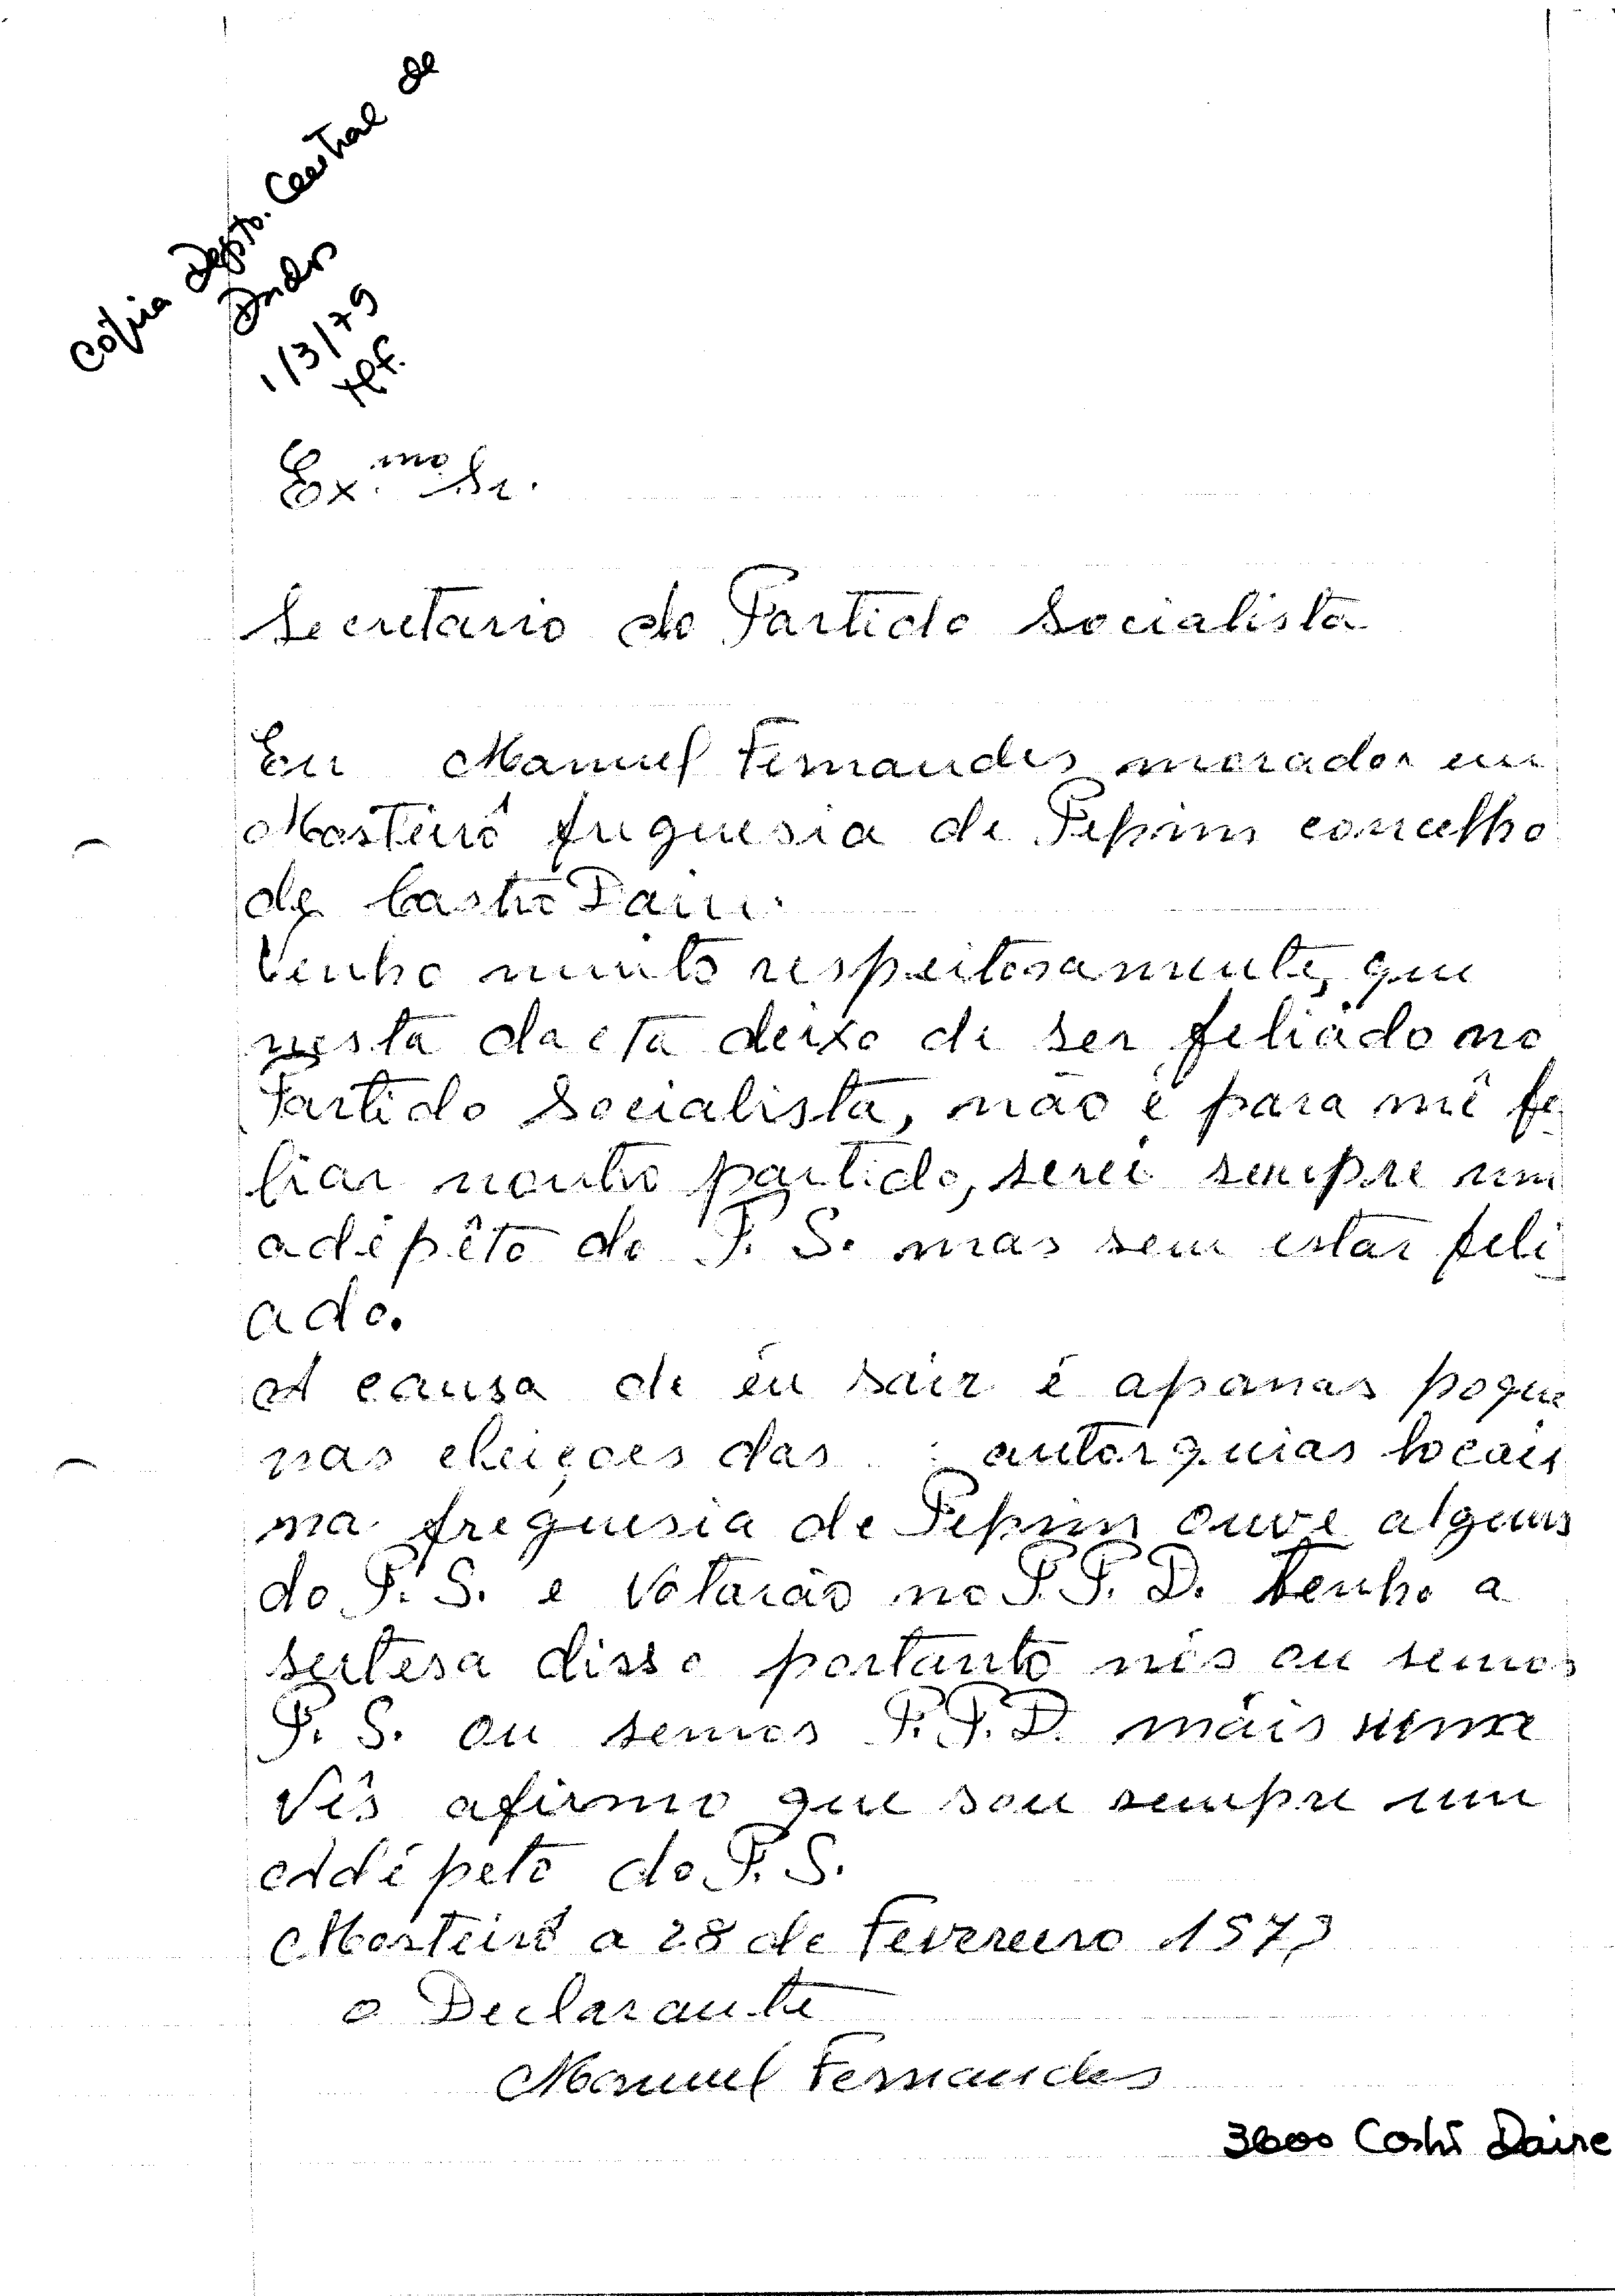 Cópia Depto. Central de
Dados
1/3/79
Ex.mo Sr.
Secretario do Partido Socialista
Eu Manuel Fernandes morador em
Mosteirô freguesia de Pepim concelho
de Castro Daire.
Venho muito respeitosamente, que
nesta dacta deixo de ser feliado no
Partido Socialista, não é para mê fe
liar noutro partido, serei sempre um
adépêto do P. S. mas sem estar feli
ado.
A causa de eu sair é apanas poque
nas eleiçoes das autorquias locais
na freguesia de Pepim ouve alguns
do P. S. e Votarão no P. P. D. tenho a
sertesa disso portanto nós ou semos
P. S. ou semos P. P. D. máis uma
Vês afirmo que sou sempre um
Adépeto do P. S.
Mosteirô a 28 de Fevereiro
o Declarante
Manuel Fernandes
3600 Castro Daire